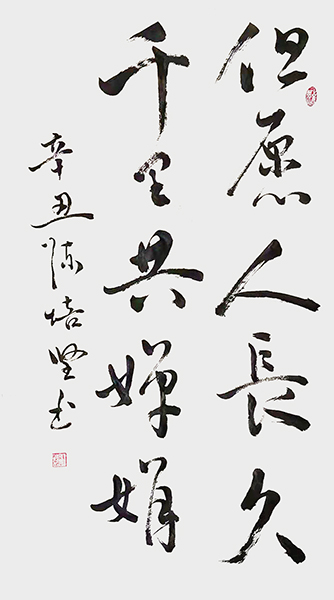 但愿人長久
千里共嬋娟
辛丑陈培坚书